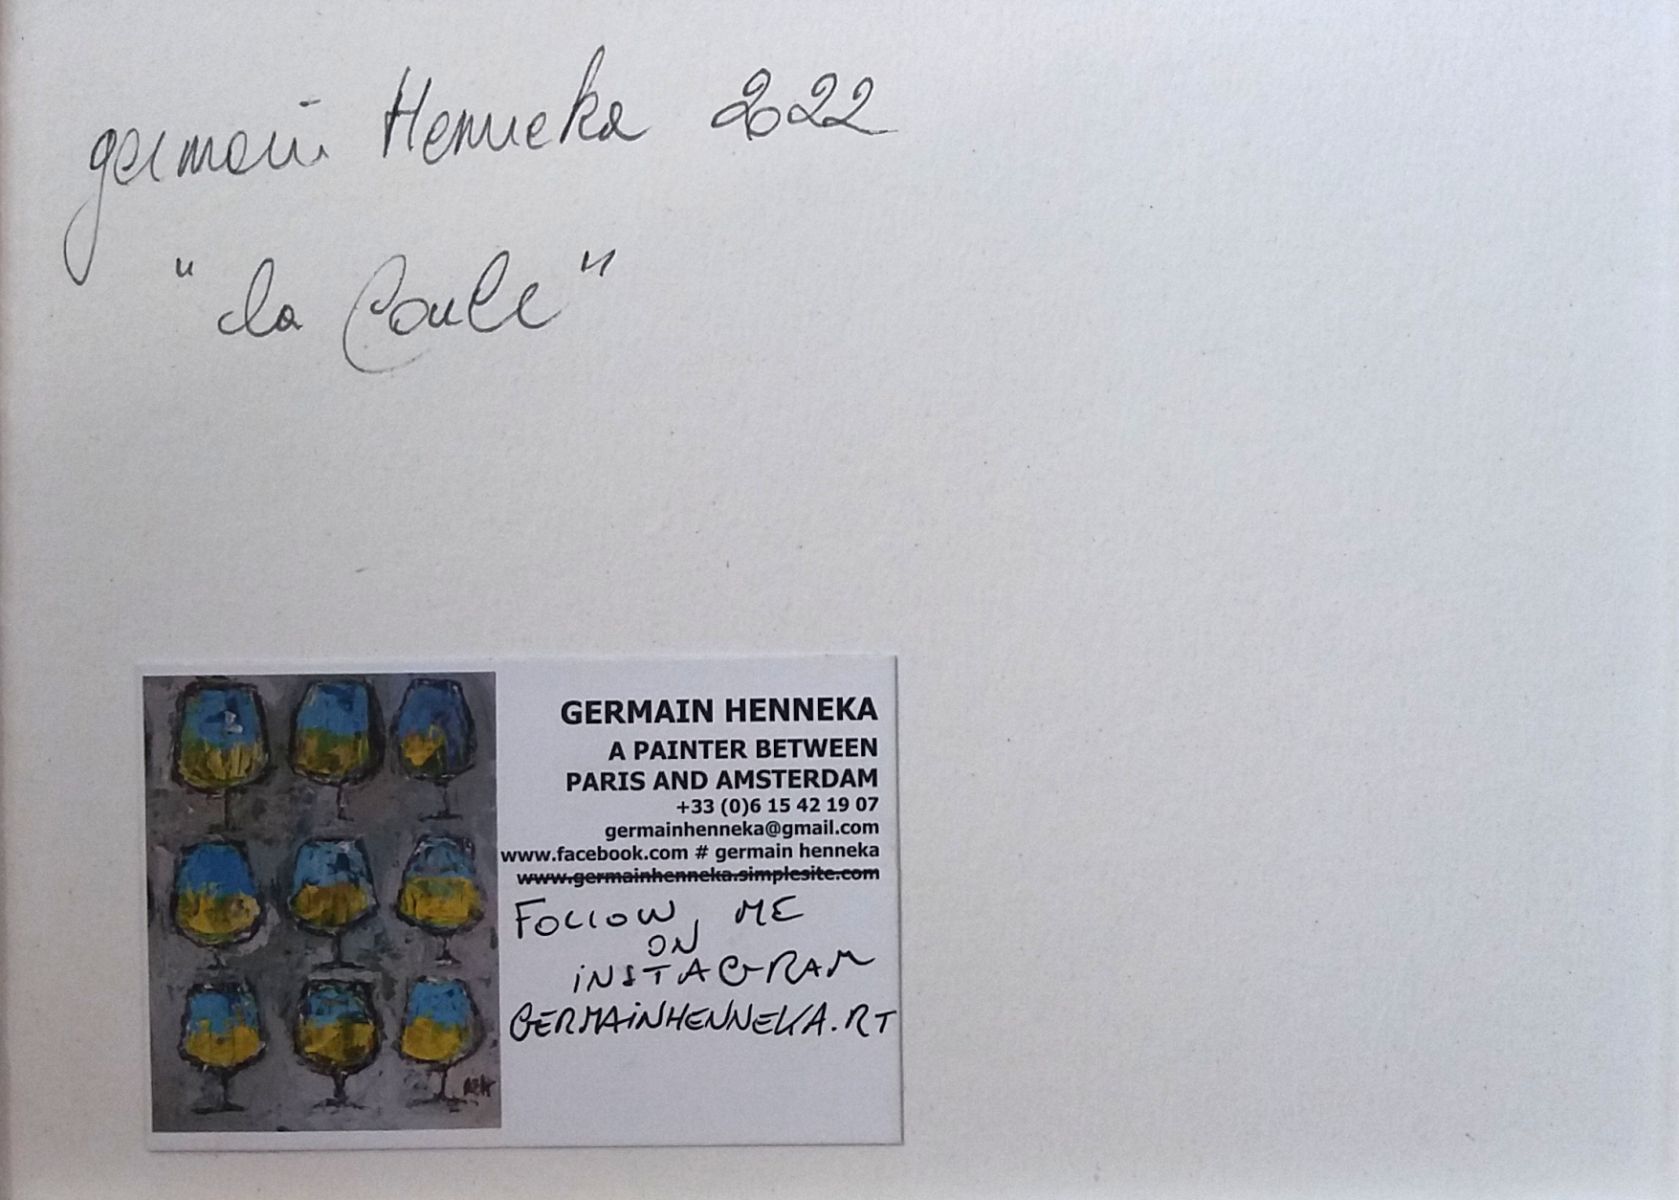 germain Henneka 2022
"La Coule"
GERMAIN HENNEKA
A PAINTER BETWEEN
PARIS AND AMSTERDAM
+33 (0)6 15 42 19 07
germainhenneka@gmail.com
www.facebook.com # germain henneka
www.germainhenneka.simplesite.com
FOLLOW ME
ON
iNSTAGRAM
GERMAiNHENNEKA.RT